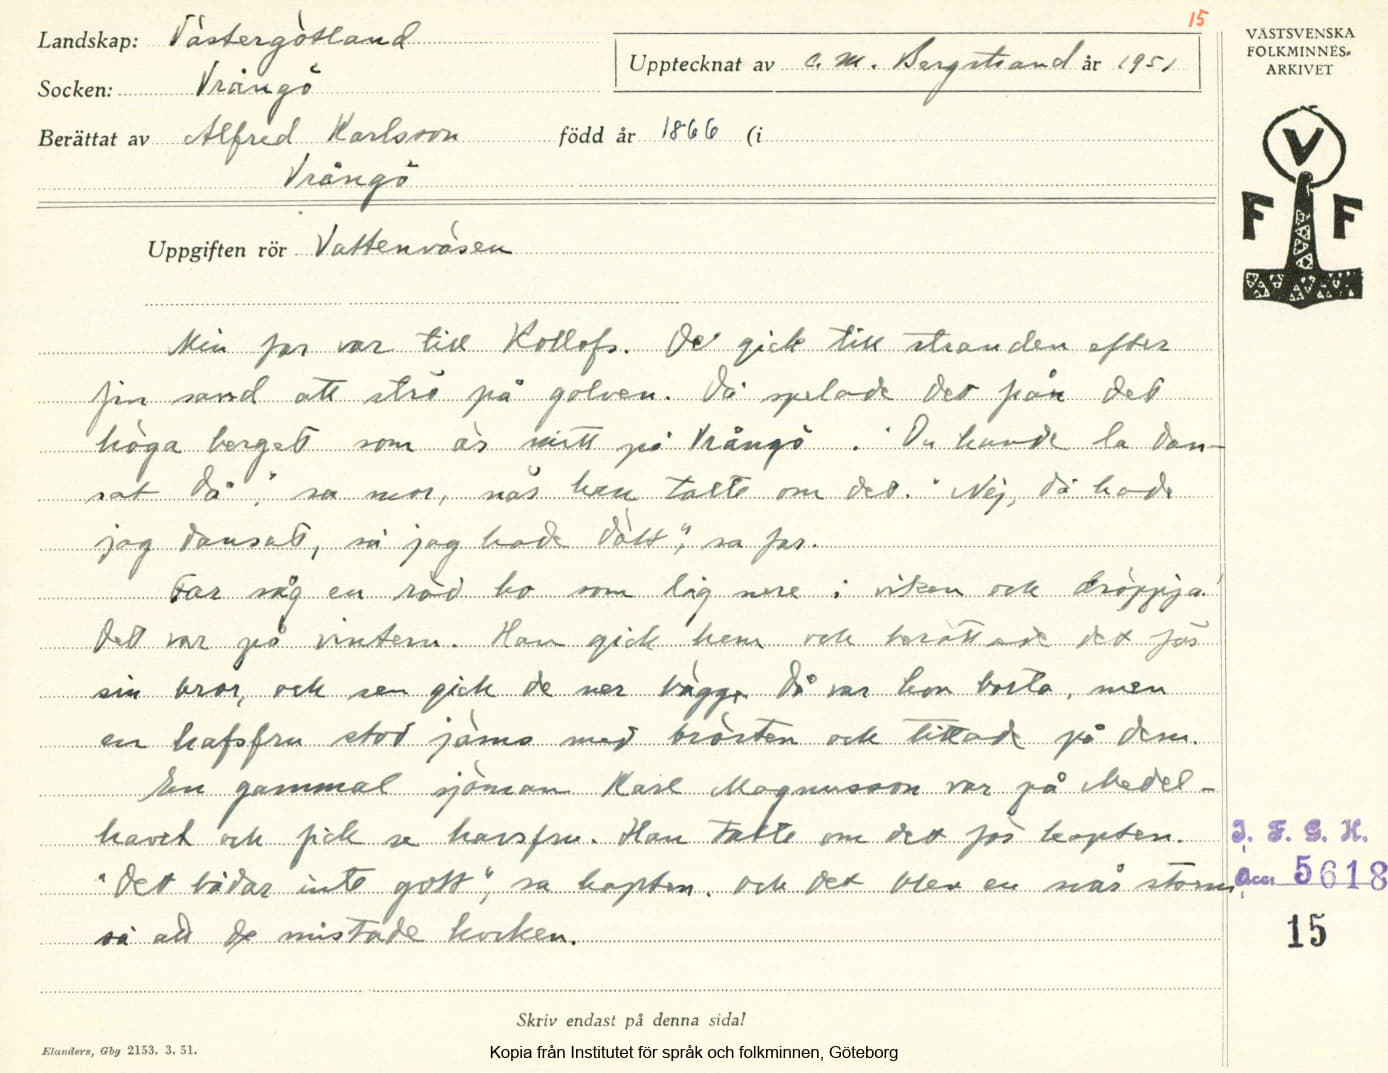 15
Landskap: Västergötland
Upptecknat av C. M. Bergstrand år 1951
Socken: Vrångö
Berättat av Alfred Karlsson född år 1866 (i
Vrångö
VÄSTSVENSKA
FOLKMINNES-
ARKIVET
V
F F
Uppgiften rör Vattenväsen
Min far var till Kollofs. De gick till stranden efter
fin sand att strö på golven. Då spelade det från det
höga berget som är mitt på Vrångö. "Du kunde la dan-
sat då", sa mor, när han talte om det. "Nej, då hade
jag dansat, så jag hade dött", sa far.
Far såg en röd ko som låg nere i viken och
Det var på vintern. Han gick hem och berättade det för
sin bror, och sen gick de ner bägge. Då var kon borta, men
en hafsfru stod jäms med brösten och tittade på dem.
En gammal sjöman Karl Magnusson var på Medel-
havet och fick se havsfru. Han talte om det för kapten.
"Det bådar inte gott", sa kapten. Och det blev en svår storm,
så att de mistade kocken.
I. F. G. H.
Acc. 5618
15
Skriv endast på denna sida!
Elanders, Gbg 2153. 3. 51.
Kopia från Institutet för språk och folkminnen, Göteborg